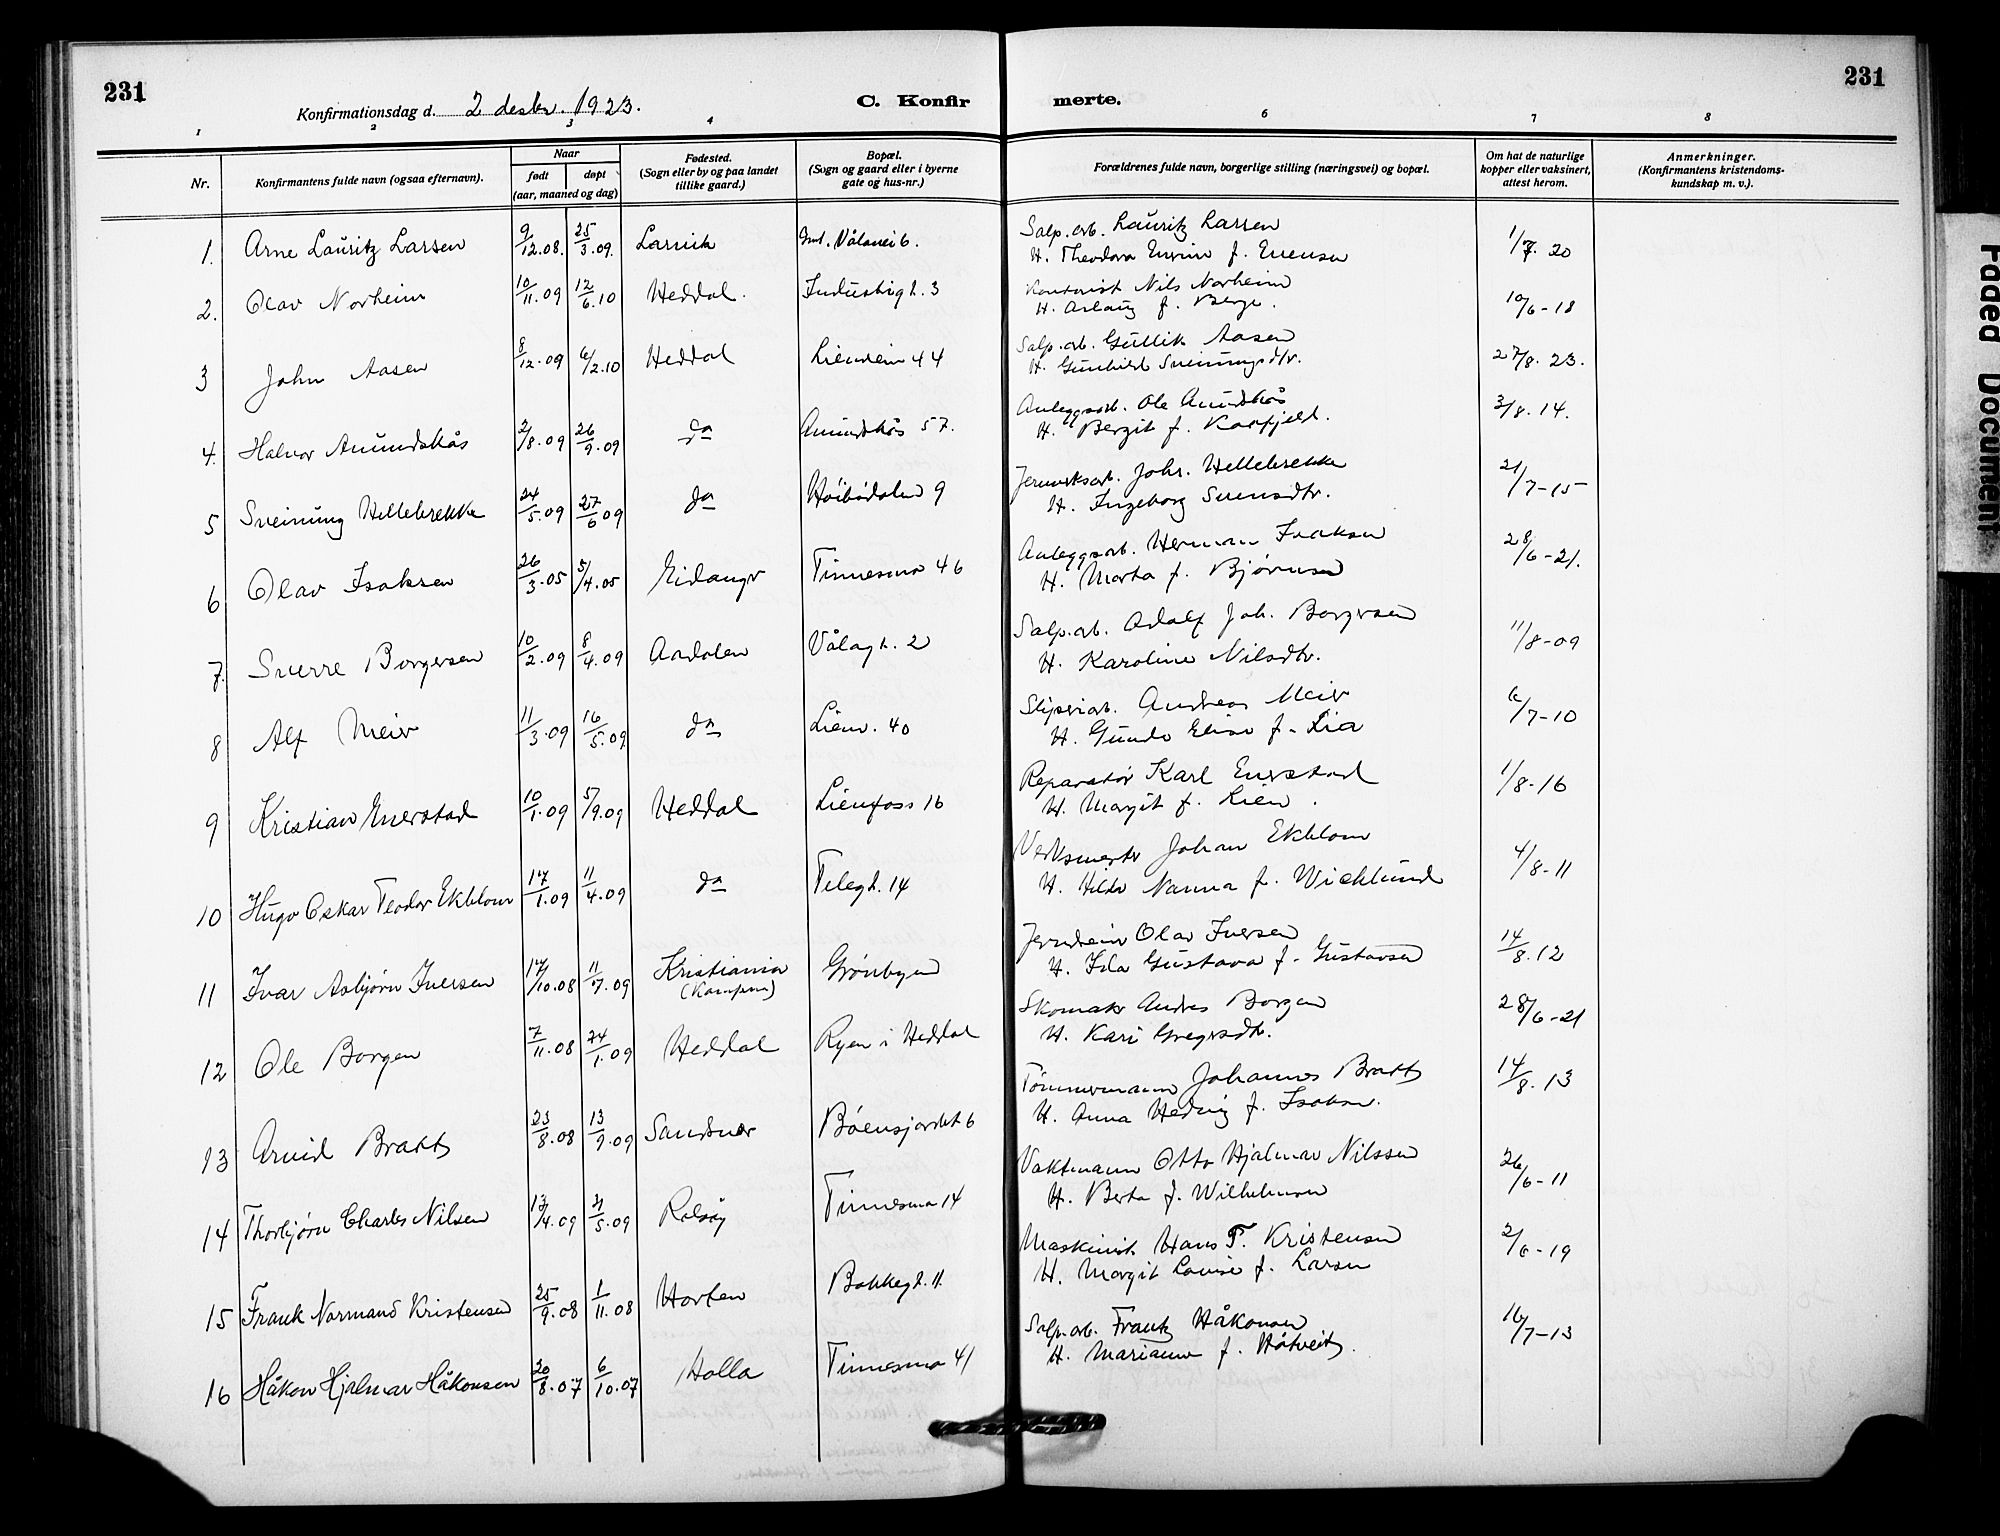 231
231
Konfirmationsdag d. 2 desbr. 1923.
C. Konfirmerte.
1 2 3 4 6 7 8
Nr.
Konfirmantens fulde navn (ogsaa efternavn).
Naar
født
døpt
(aar, maaned og dag)
Fødested.
(Sogn eller by og paa landet
tillike gaard.)
Bopæl.
(Sogn og gaard eller i byerne
gate og hus-nr.)
Forældrenes fulde navn, borgerlige stilling (næringsvei) og bopæl.
Om hat de naturlige
kopper eller vaksinert,
attest herom.
Anmerkninger.
(Konfirmantens kristendoms-
kundskap m. v.).
1. Arne Lauritz Larsen 9/12.08. 25/3.09. Larvik Vålavei 6. Salp.arb. Lauritz Larsen 1/7. 20
H. Theodora f. Evensen
2. Olav Norheim 10/11.09 12/6.10 Heddal. Industrigt. 3 Kontorist Nils Norheim 10/6-18
H. Aslaug f. Berge.
3 John Aasen 8/12.09 6/2.10 Heddal Lienvein 44 Salp.arb. Gullik Aasen 27/8. 23.
H. Gunhild Sveinungsdtr.
4. Halvor Amundskås 2/8.09 26/9.09 do Amundskås 57. Anleggsarb. Ole Amundskås 3/8. 14.
H. Bergit f. Kaafjeld.
5 Sveinung Hellebrekke 24/5.09 27/6 09 do Høibødalen 9 Jernverksarb. Johs. Hellebrekke 21/7-15
H. Ingeborg Svensdtr.
6 Olav Isaksen 26/3.05 5/4.05 Eidanger Tinnesmo 46 Anleggsarb. Herman Isaksen 28/6-21.
H. Marta f. Bjørnsen
7. Sverre Borgersen 10/2.09 8/4.09 Aadalen Vålagt. 2 Salp.arb. Adolf Joh. Borgersen 11/8-09
H. Karoline Nilsdtr.
8 Alf Meier 11/3.09 16/5.09 do Lienv. 40 Sliperiarb. Andreas Meier 6/7-10
H. Gunda Elise f. Lia
9 Kristian Enerstad 10/1.09 5/9.09 Heddal Lienfoss 16 Reparatør Karl Enerstad 1/8-16
H. Margit f. Lien.
10 Hugo Oskar Teodor Ekblom 17/1.09 11/4.09 do Telegt. 14 Verksmester Johan Ekblom 4/8-11
H. Hilda Nanna f. Wicklund
11 Ivar Asbjørn Iversen 17/10.08 11/7.09 Kristiania Grønbyen Olav Iversen 14/8.12
(Kampen) H. Ida Gustava f. Gustavsen
12 Ole Borgen 7/11.08 24/1.09 Heddal Ryen i Heddal Skomaker Andres Borgen 28/6-21
H. Kari Gregersdtr.
13 Arvid Bratts 23/8.08 13/9.09 Sandsvær Bøensjordet 6 Tømmermann Johannes Bratts 14/8.13
H. Anna Hedvig f. Isaksen.
14 Thorbjørn Charles Nilsen 13/4.09 31/5.09 Rolsøy Tinnesmo 14 Vaktmann Otto Hjalmar Nilssen 26/6-11
H. Berta f. Wilhelmsen
15 Frank Normand Kristensen 25/9.08 1/11.08 Horten Bakkegt. 11. Maskinist Hans T. Kristensen 2/6-19
H. Margit Louise f. Larsen
16 Håkon Hjalmar Håkonsen 20/8.07 6/10.07 Holla Tinnesmo 41 Salp.arb. Frantz Håkonsen 16/7-13
H. Marianne f. Håtveit.
Faded Document